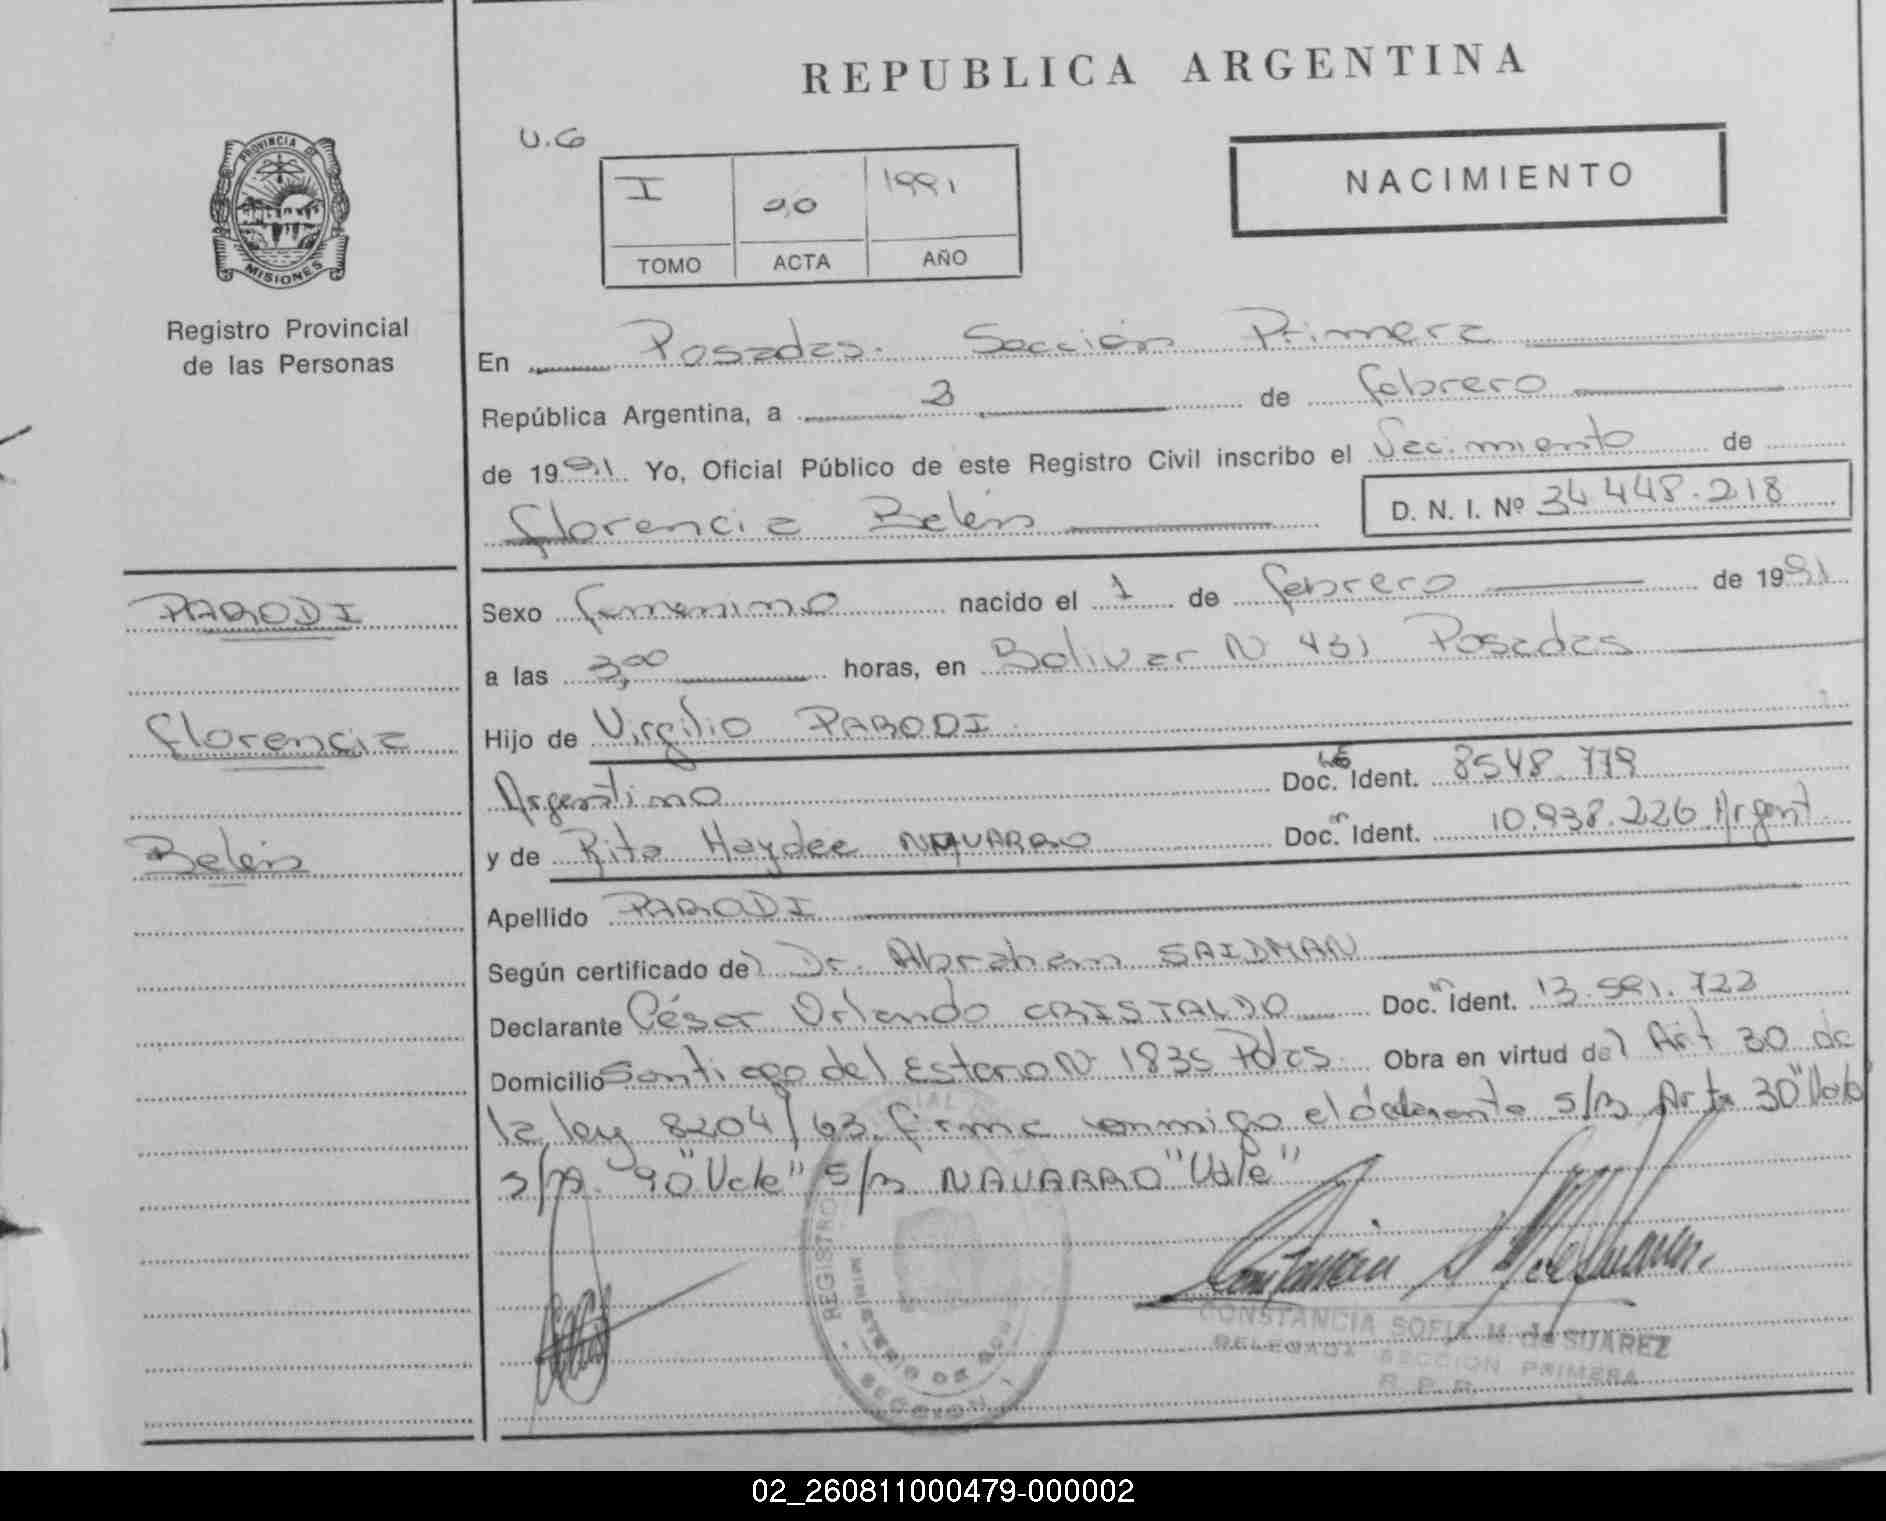 REPUBLICA ARGENTINA
U.G
PROVINCIA DE
MISIONES
Registro Provincial
de las Personas
I 90 1991
TOMO ACTA AÑO
NACIMIENTO
En Posadas. Sección Primera
República Argentina, a 3 de febrero
de 1991 Yo, Oficial Público de este Registro Civil inscribo el Nacimiento de
Florencia Belén D. N. I. Nº 34 448.218
PARODI
Florencia
Belén
Sexo femenino nacido el 1 de febrero de 1991
a las 3,00 horas, en Bolivar N 431 Posadas
Hijo de Virgilio PARODI
Argentino Doc. Ident. 8548.779
y de Rita Haydee NAVARRO Doc. Ident. 10.938.226 Argent.
Apellido PARODI
Según certificado del Dr. Abraham SAIDMAN
Declarante César Orlando CRISTALDO Doc. Ident. 13.591.722
Domicilio Santiago del Estero N 1835 Pdas. Obra en virtud del Art 30 de
la ley 8204/63. firma conmigo el declarante s/B Art 30 "Vale"
s/B. 90 "Vale" s/B NAVARRO "Vale"
REGISTRO
MINISTERIO DE
SECCION 1
CONSTANCIA SOFIA M. de SUAREZ
DELEGADA SECCION PRIMERA
R. P. P.
02_260811000479-000002